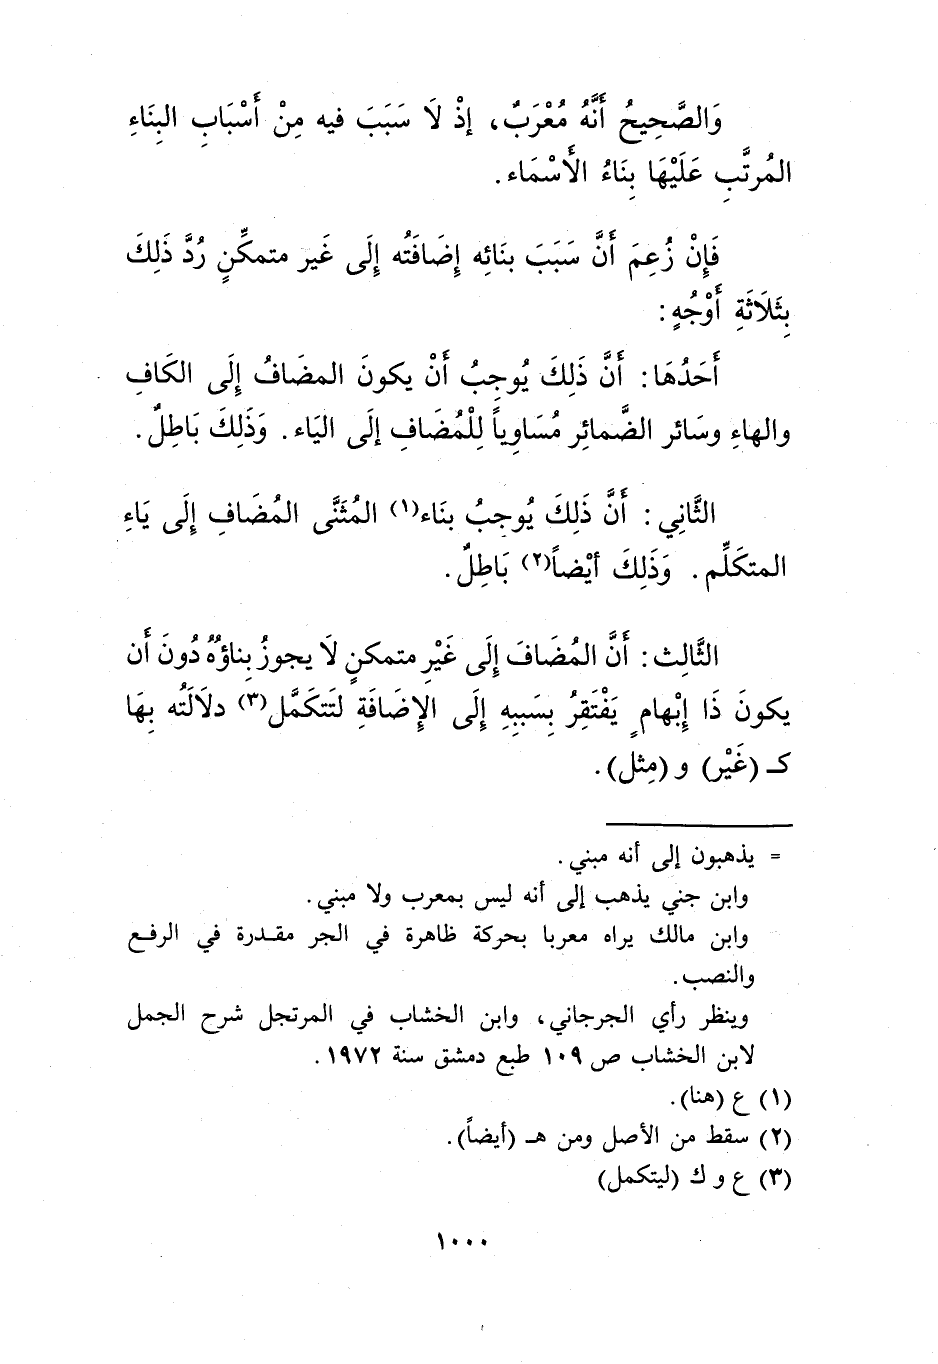 وَالصَّحِيحُ أَنَّهُ مُعْرَبٌ، إذْ لَا سَبَبَ فيه مِنْ أَسْبَابِ البِنَاءِ
المُرتَّبِ عَلَيْهَا بِنَاءُ الأَسْمَاء.
فَإِنْ زُعِمَ أَنَّ سَبَبَ بنَائِه إِضَافَتُه إِلَى غَير متمكِّنٍ رُدَّ ذَلِكَ
بِثَلَاثَةِ أَوْجُهٍ:
أَحَدُهَا: أَنَّ ذَلِكَ يُوجِبُ أَنْ يكونَ المضَافُ إِلَى الكَافِ
والهاءِ وسَائر الضَّمائِر مُسَاوِياً لِلْمُضَافِ إلَى اليَاء. وَذَلِكَ بَاطِلٌ.
الثَّانِي: أَنَّ ذَلِكَ يُوجبُ بنَاء(١) المُثَنَّى المُضَافِ إِلَى يَاءِ
المتكَلِّم. وَذَلِكَ أيْضاً(٢) بَاطِلٌ.
الثَّالِث: أَنَّ المُضَافَ إِلَى غَيْرِ متمكنٍ لَا يجوزُ بِناؤُهُ دُونَ أَن
يكونَ ذَا إِبْهامٍ يَفْتَقِرُ بِسَببِهِ إِلَى الإِضَافَةِ لتَتكَمَّل(٣) دلَالَتُه بِهَا
كـ (غَيْر) و (مِثل).
= يذهبون إلى أنه مبني.
وابن جني يذهب إلى أنه ليس بمعرب ولا مبني.
وابن مالك يراه معربا بحركة ظاهرة في الجر مقـدرة في الرفـع
والنصب.
وينظر رأي الجرجاني، وابن الخشاب في المرتجل شرح الجمل
لابن الخشاب ص ١٠٩ طبع دمشق سنة ١٩٧٢.
(١) ع (هنا).
(٢) سقط من الأصل ومن هـ (أيضاً).
(٣) ع و ك (ليتكمل)
١٠٠٠